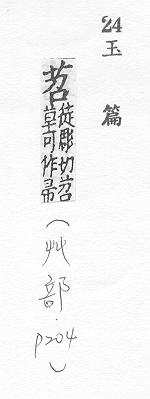 24
玉篇
苕徒彫切苕
草可作帚
(艸部.p204)